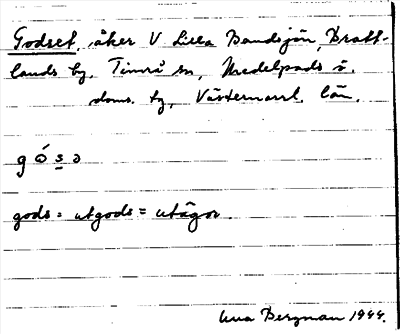 Godset, åker V Lilla Bandsjön, Bratt-
lands by, Timrå sn, Medelpads ö.
doms. tg, Västernorrl. län.
gósə
gods = utgods = utägor.
Una Bergman 1944.